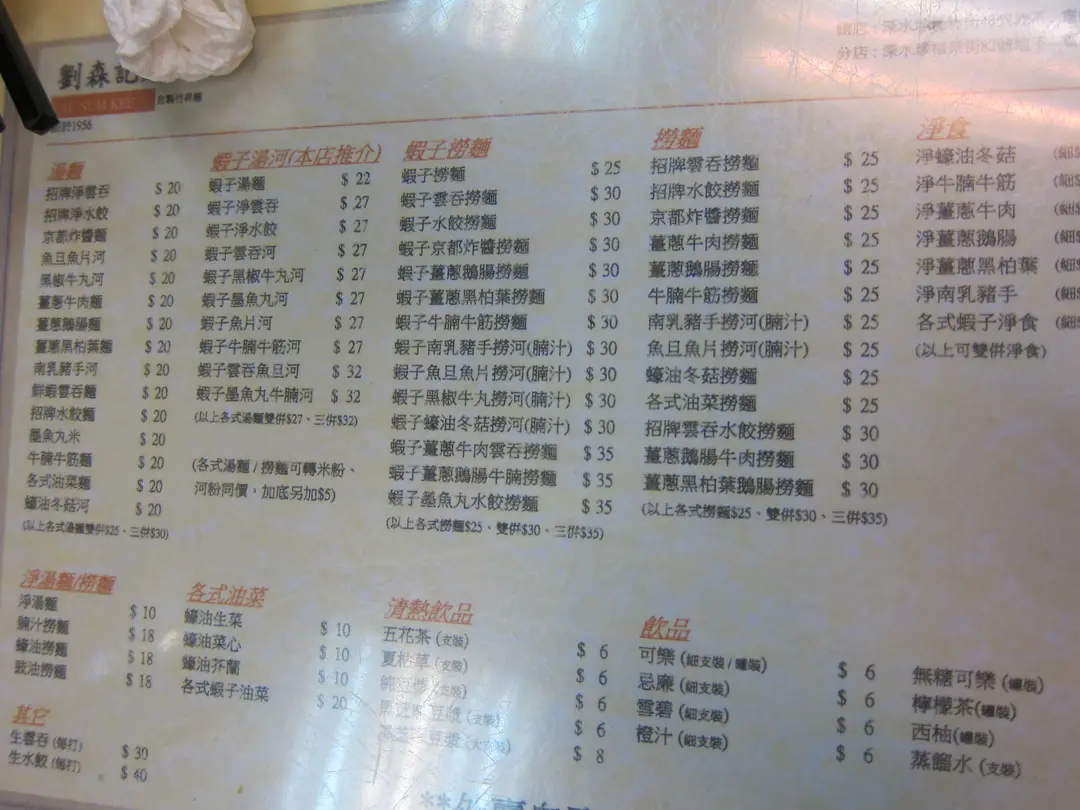 劉森記
自製竹昇麵
1956
分店：深水埗福榮街82號地下
湯麵
招牌淨雲吞 $ 20
招牌淨水餃 $ 20
京都炸醬麵 $ 20
魚旦魚片河 $ 20
黑椒牛丸河 $ 20
薑蔥牛肉麵 $ 20
薑蔥鵝腸麵 $ 20
薑蔥黑柏葉麵 $ 20
南乳豬手河 $ 20
鮮蝦雲吞麵 $ 20
招牌水餃麵 $ 20
墨魚丸米 $ 20
牛腩牛筋麵 $ 20
各式油菜麵 $ 20
蠔油冬菇河 $ 20
(以上各式湯麵雙併$25、三併$30)
蝦子湯河(本店推介)
蝦子湯麵 $ 22
蝦子淨雲吞 $ 27
蝦子淨水餃 $ 27
蝦子雲吞河 $ 27
蝦子黑椒牛丸河 $ 27
蝦子墨魚丸河 $ 27
蝦子魚片河 $ 27
蝦子牛腩牛筋河 $ 27
蝦子雲吞魚旦河 $ 32
蝦子墨魚丸牛腩河 $ 32
(以上各式湯麵雙併$27、三併$32)
(各式湯麵 / 撈麵可轉米粉、
河粉同價，加底另加$5)
蝦子撈麵
蝦子撈麵 $ 25
蝦子雲吞撈麵 $ 30
蝦子水餃撈麵 $ 30
蝦子京都炸醬撈麵 $ 30
蝦子薑蔥鵝腸撈麵 $ 30
蝦子薑蔥黑柏葉撈麵 $ 30
蝦子牛腩牛筋撈麵 $ 30
蝦子南乳豬手撈河(腩汁) $ 30
蝦子魚旦魚片撈河(腩汁) $ 30
蝦子黑椒牛丸撈河(腩汁) $ 30
蝦子蠔油冬菇撈河(腩汁) $ 30
蝦子薑蔥牛肉雲吞撈麵 $ 35
蝦子薑蔥鵝腸牛腩撈麵 $ 35
蝦子墨魚丸水餃撈麵 $ 35
(以上各式撈麵$25、雙併$30、三併$35)
撈麵
招牌雲吞撈麵 $ 25
招牌水餃撈麵 $ 25
京都炸醬撈麵 $ 25
薑蔥牛肉撈麵 $ 25
薑蔥鵝腸撈麵 $ 25
牛腩牛筋撈麵 $ 25
南乳豬手撈河(腩汁) $ 25
魚旦魚片撈河(腩汁) $ 25
蠔油冬菇撈麵 $ 25
各式油菜撈麵 $ 25
招牌雲吞水餃撈麵 $ 30
薑蔥鵝腸牛肉撈麵 $ 30
薑蔥黑柏葉鵝腸撈麵 $ 30
(以上各式撈麵$25、雙併$30、三併$35)
淨食
淨蠔油冬菇 (細$
淨牛腩牛筋 (細$
淨薑蔥牛肉 (細$
淨薑蔥鵝腸 (細$
淨薑蔥黑柏葉 (細$
淨南乳豬手 (細$
各式蝦子淨食 (細$
(以上可雙併淨食)
淨湯麵/撈麵
淨湯麵 $ 10
腩汁撈麵 $ 18
蠔油撈麵 $ 18
豉油撈麵 $ 18
其它
生雲吞 (每打) $ 30
生水餃 (每打) $ 40
各式油菜
蠔油生菜 $ 10
蠔油菜心 $ 10
蠔油芥蘭 $ 10
各式蝦子油菜 $ 20
清熱飲品
五花茶 (支裝) $ 6
夏枯草 (支裝) $ 6
純豆漿 (支裝) $ 6
豆漿 (支裝) $ 6
豆漿 $ 8
飲品
可樂 (細支裝 / 罐裝) $ 6
忌廉 (細支裝) $ 6
雪碧 (細支裝) $ 6
橙汁 (細支裝) $ 6
無糖可樂 (罐裝)
檸檬茶(罐裝)
西柚(罐裝)
蒸餾水 (支裝)